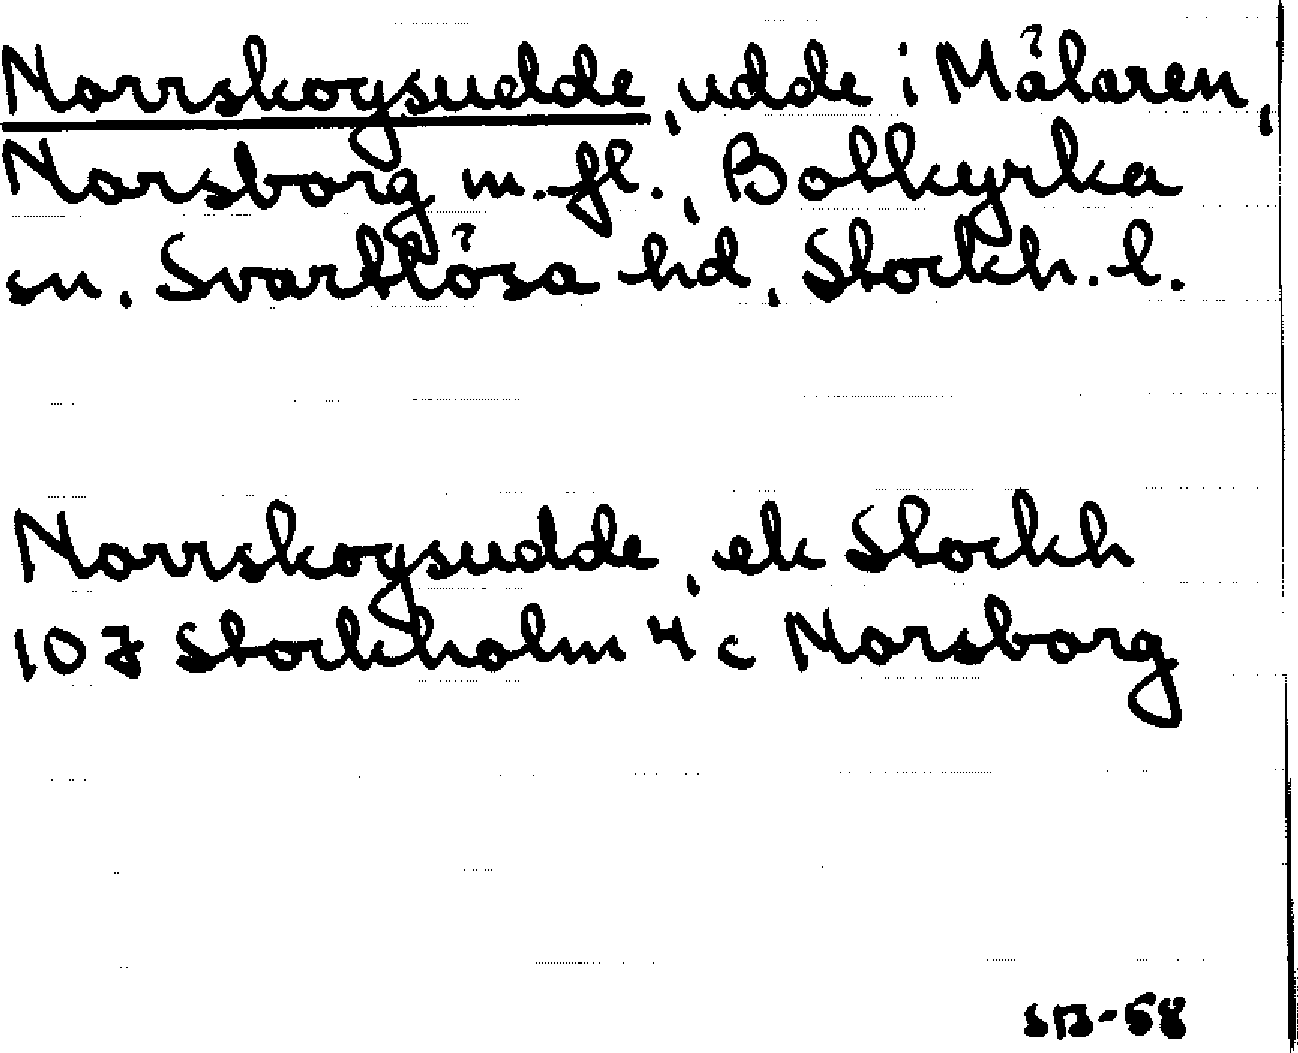 Norrskogsudde, udde i Mälaren,
Norsborg m.fl., Botkyrka
sn, Svartlösa hd, Stockh. l.
Norrskogsudde, ek Stockh
107 Stockholm 4 c Norsborg
SB-58